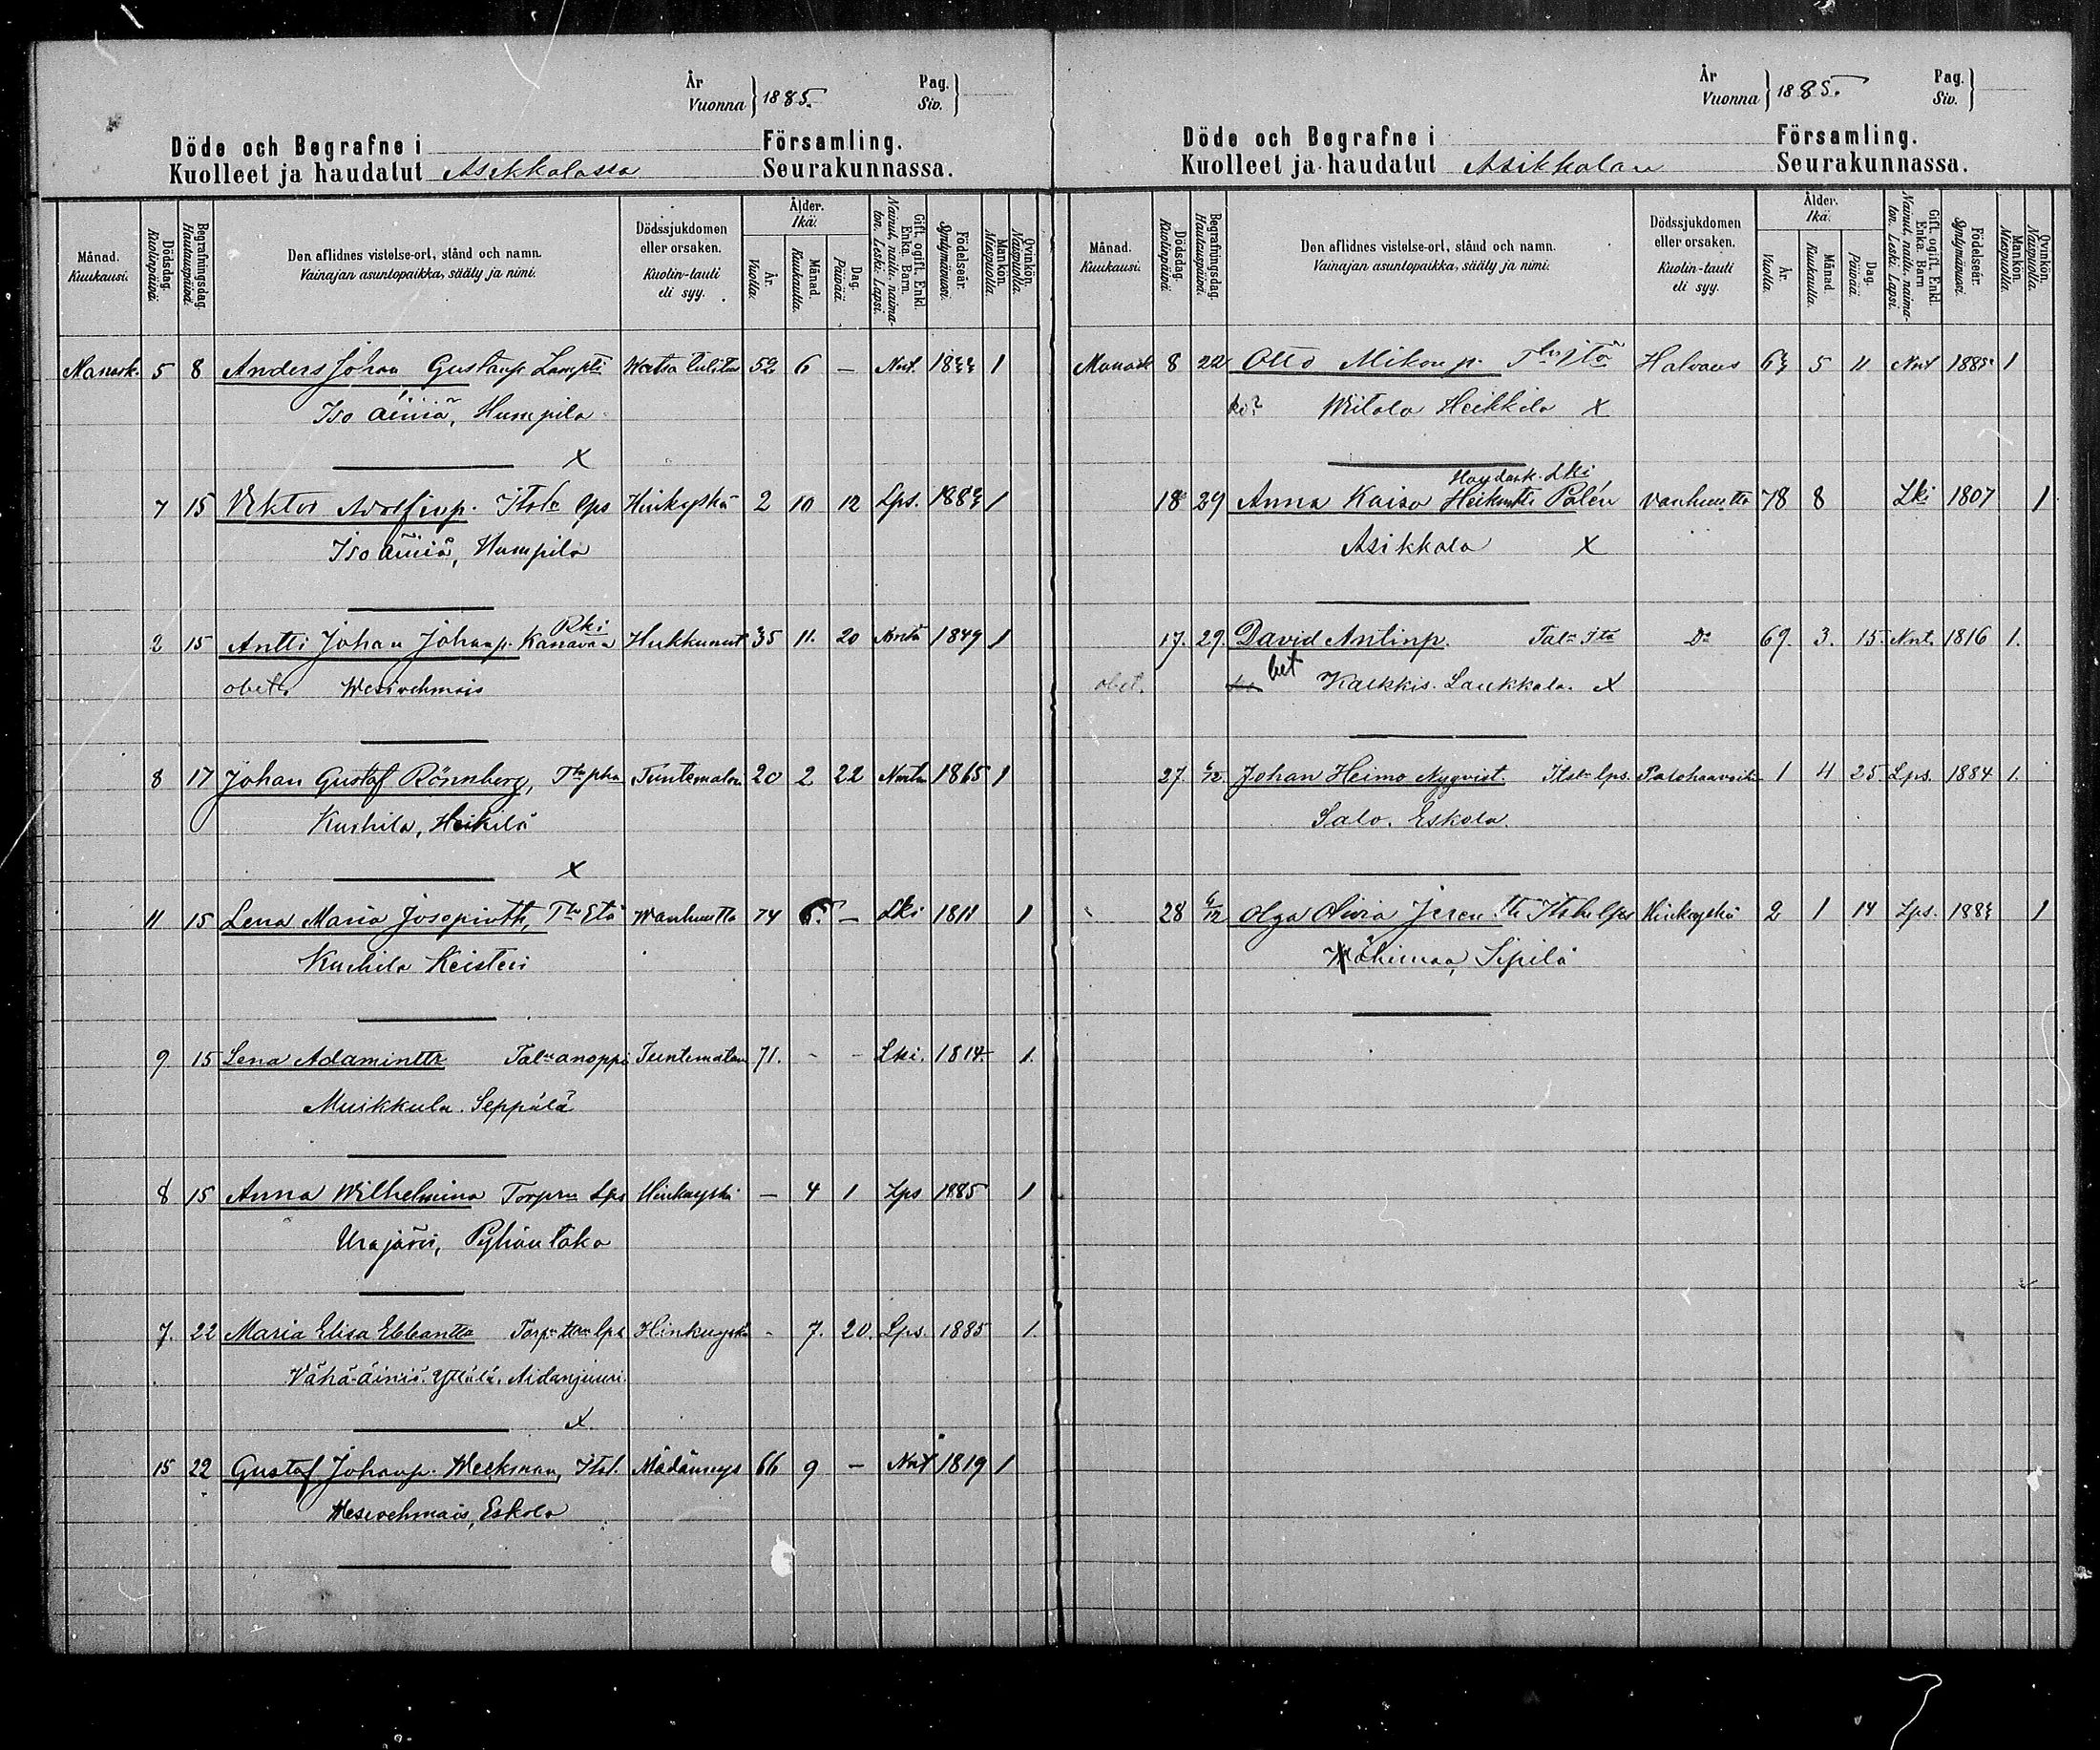 År
Vuonna } 1885. Pag.
Siv. }
Döde och Begrafne i Församling.
Kuolleet ja haudatut Asikkalassa Seurakunnassa.
Månad. Kuukausi.
Dödsdag. Kuolinpäivä.
Begrafningsdag. Hautauspäivä.
Den aflidnes vistelse-ort, stånd och namn.
Vainajan asuntopaikka, sääty ja nimi.
Dödssjukdomen eller orsaken.
Kuolin-tauti eli syy.
Ålder. Ikä.
År. Vuotta.
Månad. Kuukautta.
Dag. Päivää.
Gift, ogift. Enkl. Enka. Barn.
Nainut, naitu, naimaton. Leski. Lapsi.
Födelseår. Syntymävuosi.
Mankön. Miespuolia.
Qvinkön. Naispuolia.
Marrask. 5 8 Anders Johan Gustafsp. Watsa tulitus 52 6 — Nut. 1833 1
Iso äiniä, Humpila
X
7 15 Viktor Adolfinp. Itsle lps Hinkuyskä 2 10 12 Lps. 1883 1
Iso äiniä, Humpila
Rki
2 15 Antti Johan Johanp. Kanavan Hukkunut 35 11. 20 1849 1
obet. Wesivehmais
8 17 Johan Gustaf Rönnberg, Tuntematon 20 2 22 1865 1
Kurhila, Heikilä
X
11 15 Lena Maria Josepintr, Wanhuutta 74 6. — Lki 1811 1
Kurhila Keisteri
9 15 Lena Adamintr Taln anoppi Tuntematon 71. - - Lki. 1814. 1.
Muikkula. Seppälä
8 15 Anna Wilhelmina Torprn Lps Hinkuyskä — 4 1 Lps 1885 1
Urajärvi, Pyhäntaka
7. 22 Maria Elisa Ebbantr lps Hinkuyskä - 7. 20. Lps. 1885 1.
Vähä-äiniö. Yttälä. Aidanjuuri.
X
15 22 Gustaf Johanp. Weckman, Itsl. Mädännys 66 9 — Nut 1819 1
Wesivehmais, Eskola
År
Vuonna } 1885. Pag.
Siv. }
Döde och Begrafne i Församling.
Kuolleet ja haudatut Asikkalan Seurakunnassa.
Månad. Kuukausi.
Dödsdag. Kuolinpäivä.
Begrafningsdag. Hautauspäivä.
Den aflidnes vistelse-ort, stånd och namn.
Vainajan asuntopaikka, sääty ja nimi.
Dödssjukdomen eller orsaken.
Kuolin-tauti eli syy.
Ålder. Ikä.
År. Vuotta.
Månad. Kuukautta.
Dag. Päivää.
Gift, ogift. Enkl. Enka. Barn
Nainut, naitu, naimaton. Leski. Lapsi.
Födelseår. Syntymävuosi.
Mankön. Miespuolia.
Qvinkön. Naispuolia.
Marrask 8 22 Otto Mikonp. Halvaus 63 5 11 Nut 1
Wiitala Heikkilä X
Lki
18 29 Anna Kaisa Palén Vanhuutta 78 8 Lki 1807 1
Asikkala X
17. 29. David Antinp. Taln Itä Do 69. 3. 15. Nut. 1816 1.
obet. bet Kalkkis. Laukkala. X
27. 6/12 Johan Heimo Nyqvist. Itsln lps. Palohaavoihin 1 4 25 Lps. 1884 1.
Salo. Eskola.
28 6/12 Olga Olivia Hinkuyskä 2 1 14 Lps. 1883 1
Wähimaa, Sipilä